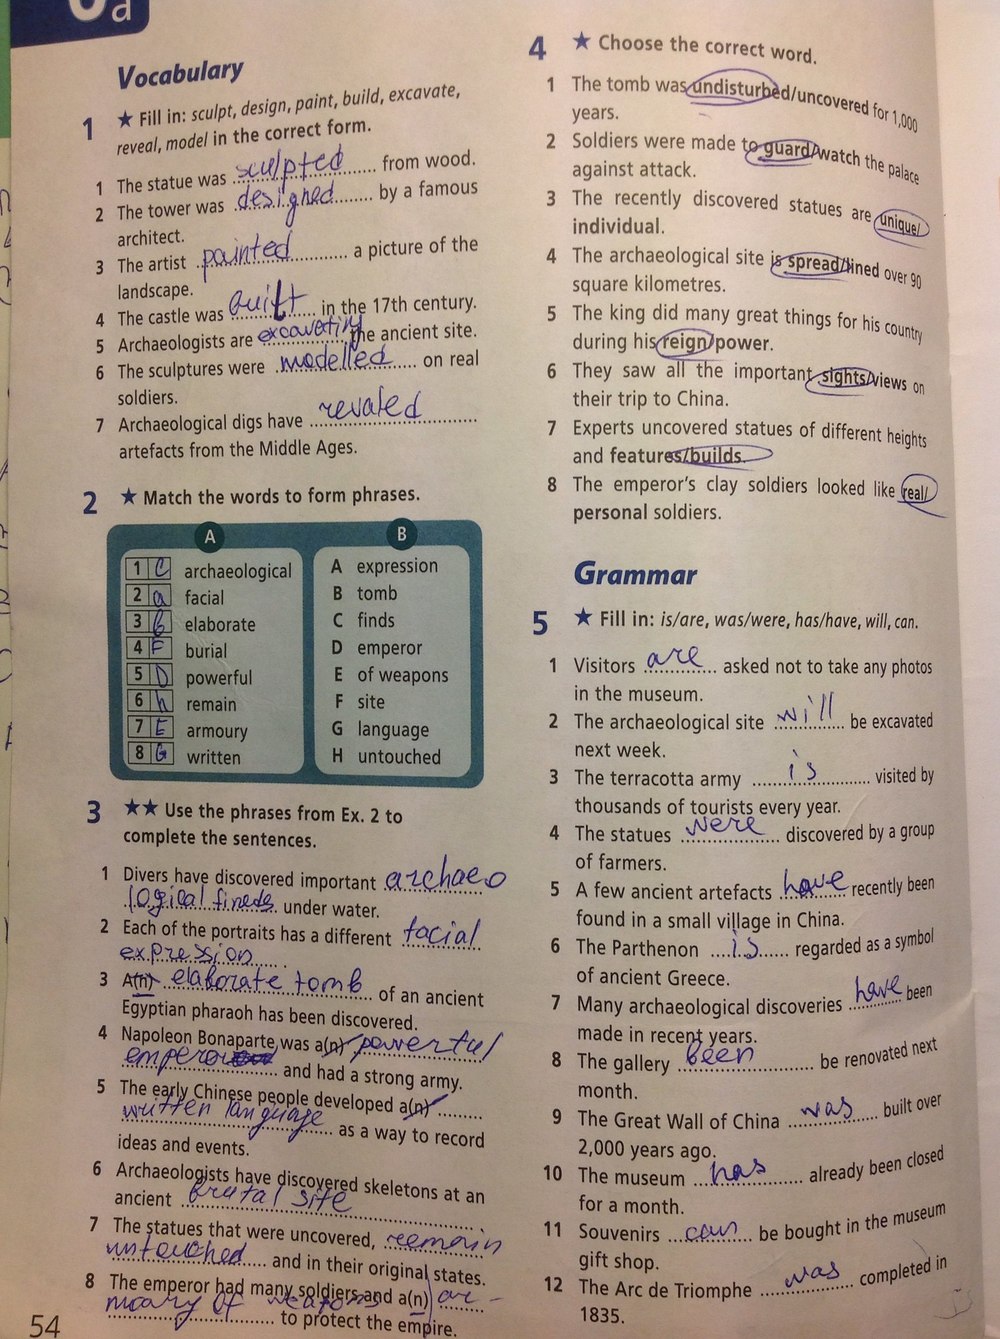 6a
Vocabulary
1 ★ Fill in: sculpt, design, paint, build, excavate,
reveal, model in the correct form.
1 The statue was sculpted from wood.
2 The tower was designed by a famous
architect.
3 The artist painted a picture of the
landscape.
4 The castle was built in the 17th century.
5 Archaeologists are excavating the ancient site.
6 The sculptures were modelled on real
soldiers.
7 Archaeological digs have revaled
artefacts from the Middle Ages.
2 ★ Match the words to form phrases.
A B
1 C archaeological A expression
2 a facial B tomb
3 b elaborate C finds
4 F burial D emperor
5 D powerful E of weapons
6 h remain F site
7 E armoury G language
8 G written H untouched
3 ★★ Use the phrases from Ex. 2 to
complete the sentences.
1 Divers have discovered important archaeo
logical fineds under water.
2 Each of the portraits has a different facial
expression.
3 A(n) elaborate tomb of an ancient
Egyptian pharaoh has been discovered.
4 Napoleon Bonaparte was a(n) powerful
emperor and had a strong army.
5 The early Chinese people developed a(n)
written language as a way to record
ideas and events.
6 Archaeologists have discovered skeletons at an
ancient brutal site.
7 The statues that were uncovered, remain
untouched and in their original states.
8 The emperor had many soldiers and a(n) ar-
moary of weapons to protect the empire.
54
4 ★ Choose the correct word.
1 The tomb was undisturbed/uncovered for 1,000
years.
2 Soldiers were made to guard/watch the palace
against attack.
3 The recently discovered statues are unique/
individual.
4 The archaeological site is spread/lined over 90
square kilometres.
5 The king did many great things for his country
during his reign/power.
6 They saw all the important sights/views on
their trip to China.
7 Experts uncovered statues of different heights
and features/builds.
8 The emperor's clay soldiers looked like real/
personal soldiers.
Grammar
5 ★ Fill in: is/are, was/were, has/have, will, can.
1 Visitors are asked not to take any photos
in the museum.
2 The archaeological site will be excavated
next week.
3 The terracotta army is visited by
thousands of tourists every year.
4 The statues were discovered by a group
of farmers.
5 A few ancient artefacts have recently been
found in a small village in China.
6 The Parthenon is regarded as a symbol
of ancient Greece.
7 Many archaeological discoveries have been
made in recent years.
8 The gallery been be renovated next
month.
9 The Great Wall of China was built over
2,000 years ago.
10 The museum has already been closed
for a month.
11 Souvenirs can be bought in the museum
gift shop.
12 The Arc de Triomphe was completed in
1835.